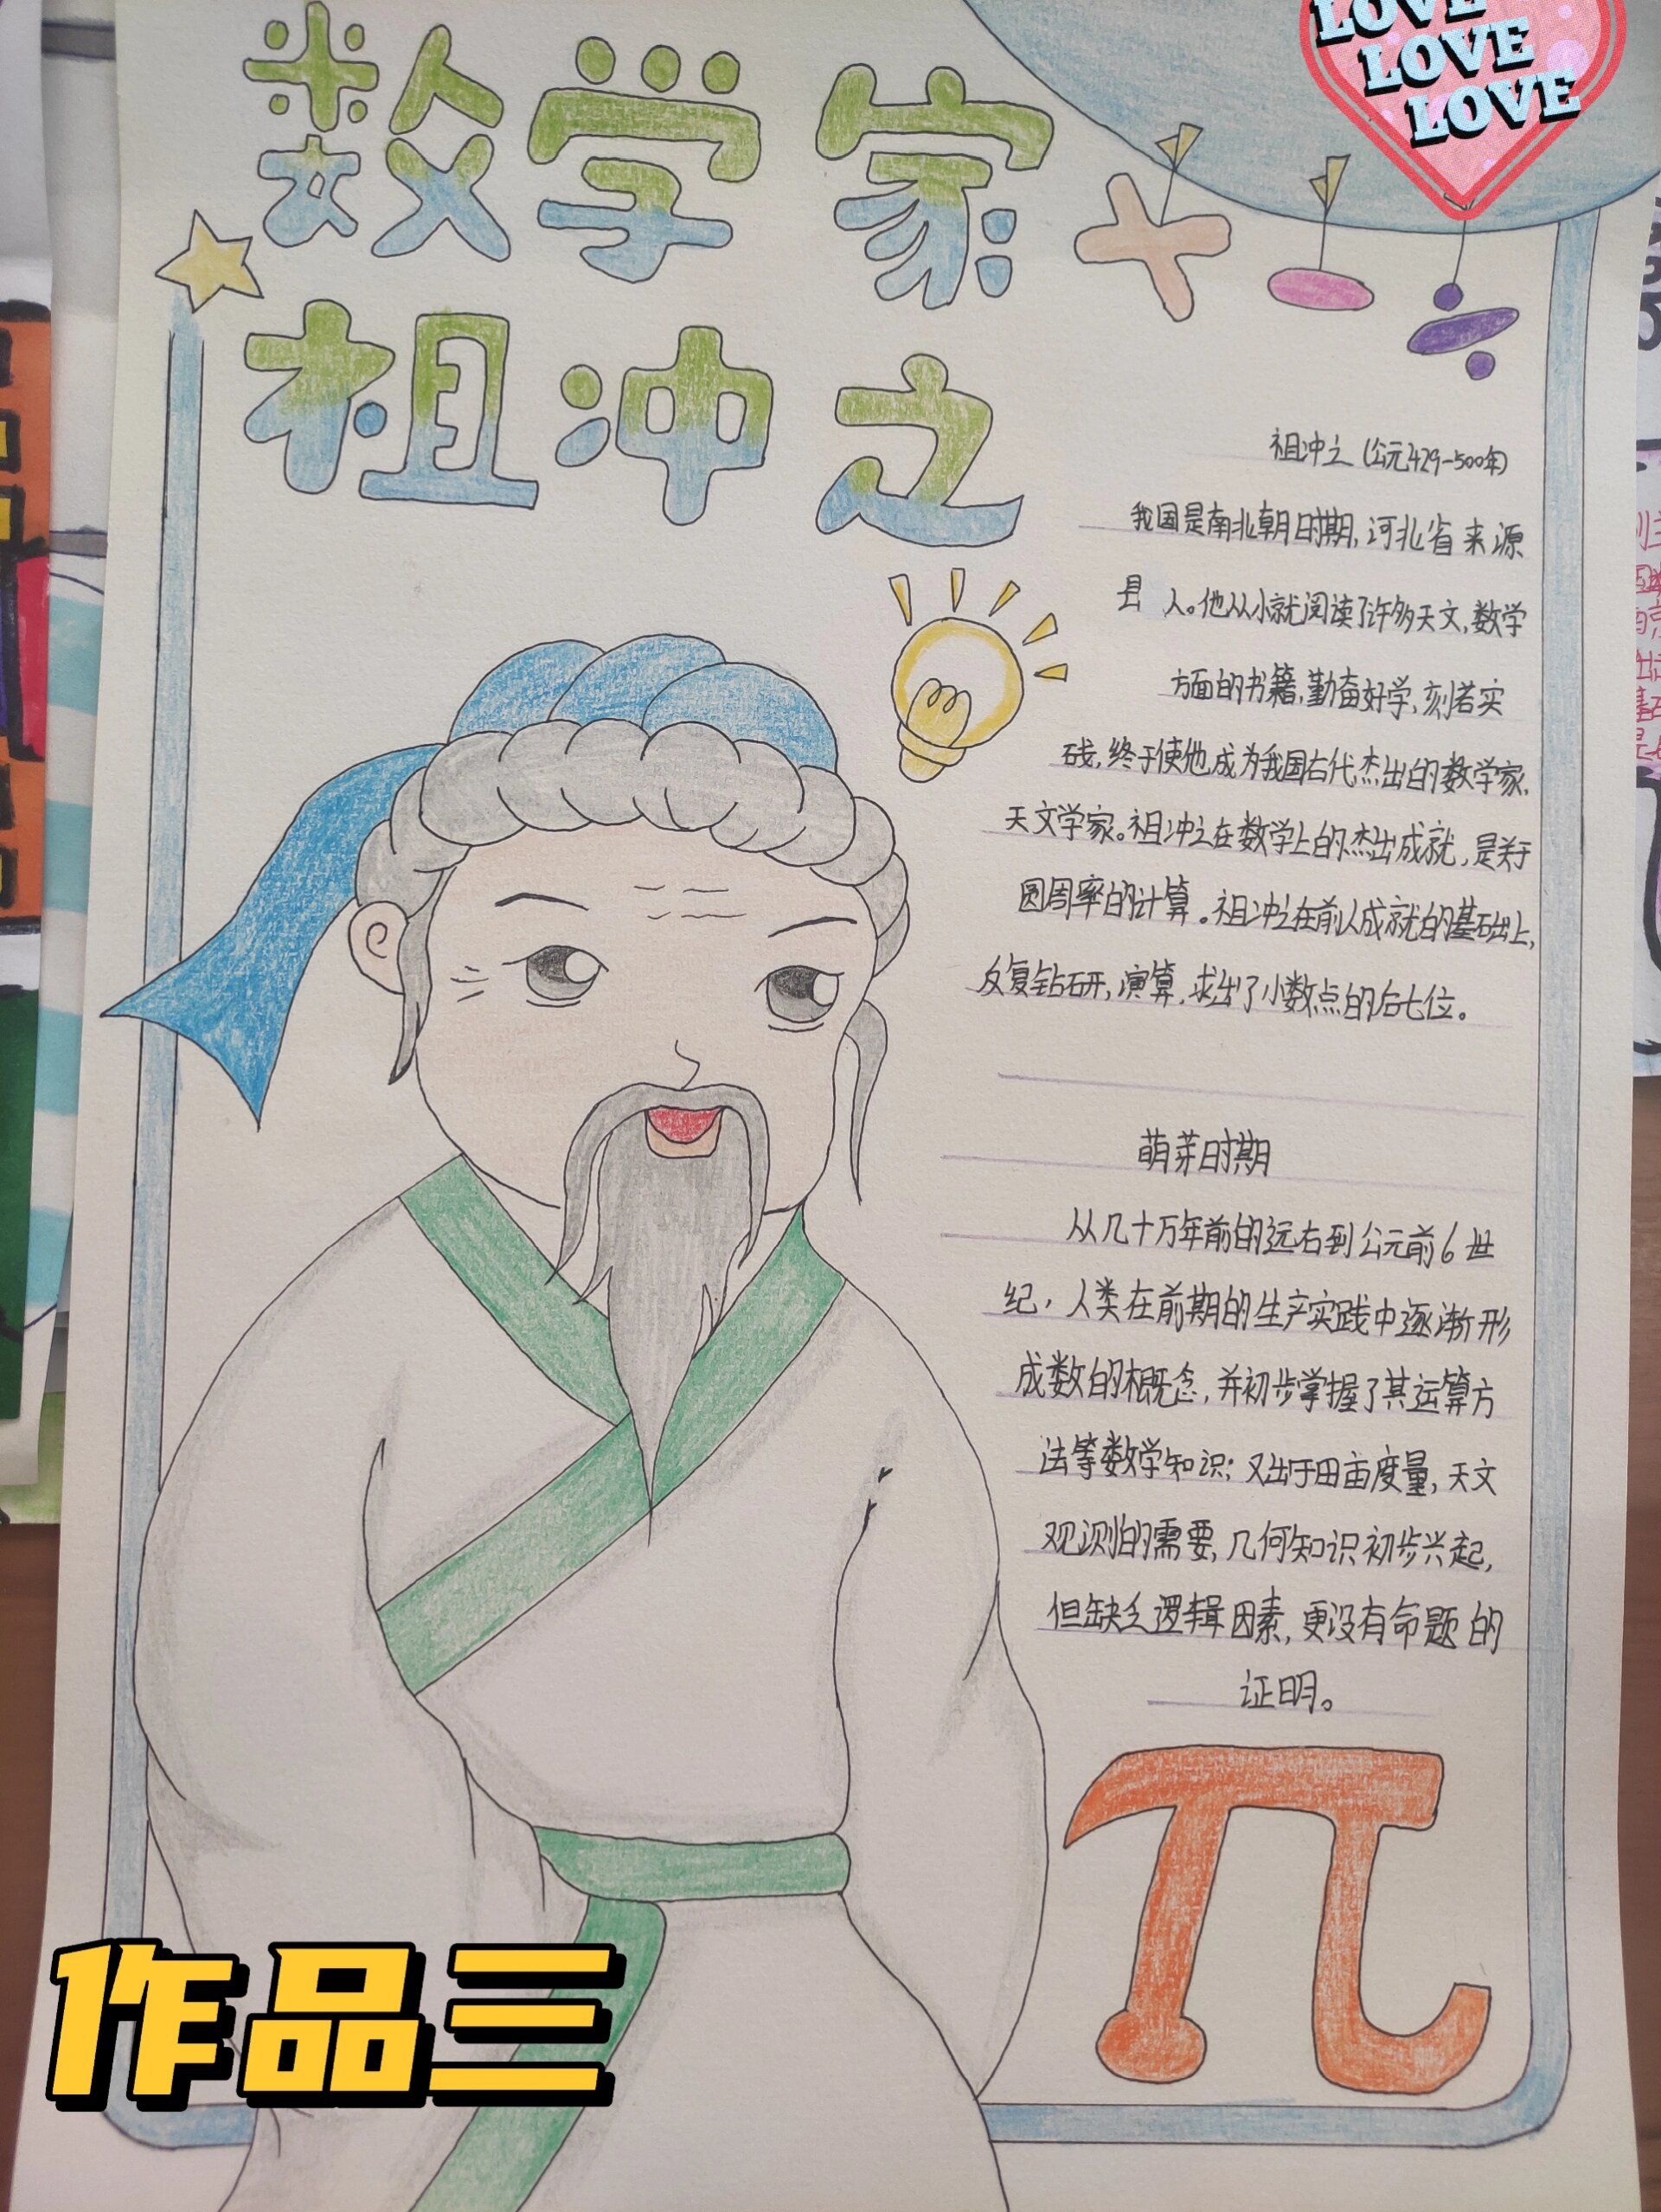 LOVE
LOVE
LOVE
数学家
祖冲之
祖冲之(公元429-500年)
我国是南北朝时期,河北省来源
县 人。他从小就阅读了许多天文,数学
方面的书籍,勤奋好学,刻若实
砖,终于使他成为我国古代杰出的数学家,
天文学家。祖冲之在数学上的杰出成就,是关于
圆周率的计算。祖冲之在前人成就的基础上,
反复钻研,演算,求出了小数点的后七位。
萌芽时期
从几十万年前的远古到公元前6世
纪,人类在前期的生产实践中逐渐形
成数的概念,并初步掌握了其运算方
法等数学知识;又出于田亩度量,天文
观测的需要,几何知识初步兴起,
但缺乏逻辑因素,更没有命题的
证明。
π
作品三